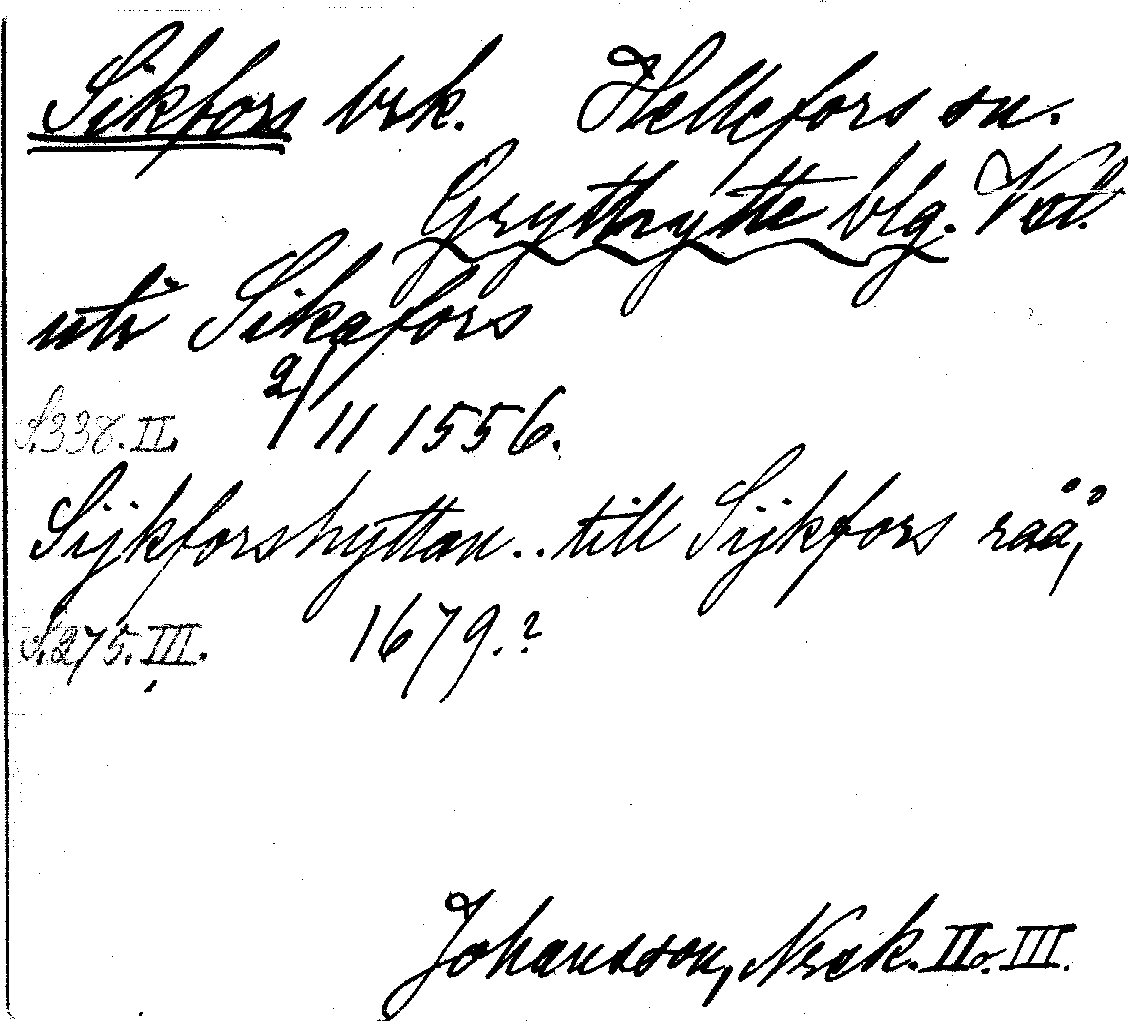 Sikfors brk. Hellefors sn.
Grythytte blg. Vstl.
uti Sikafors
S. 338. II. 2/11 1556.
Sijkforshyttan.. till Sijkfors råå,
S. 275. III. 1679.?
Johansson, Norask. II o. III.